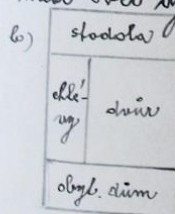 b) stodola
chlé-
vy dvůr
obyt. dům